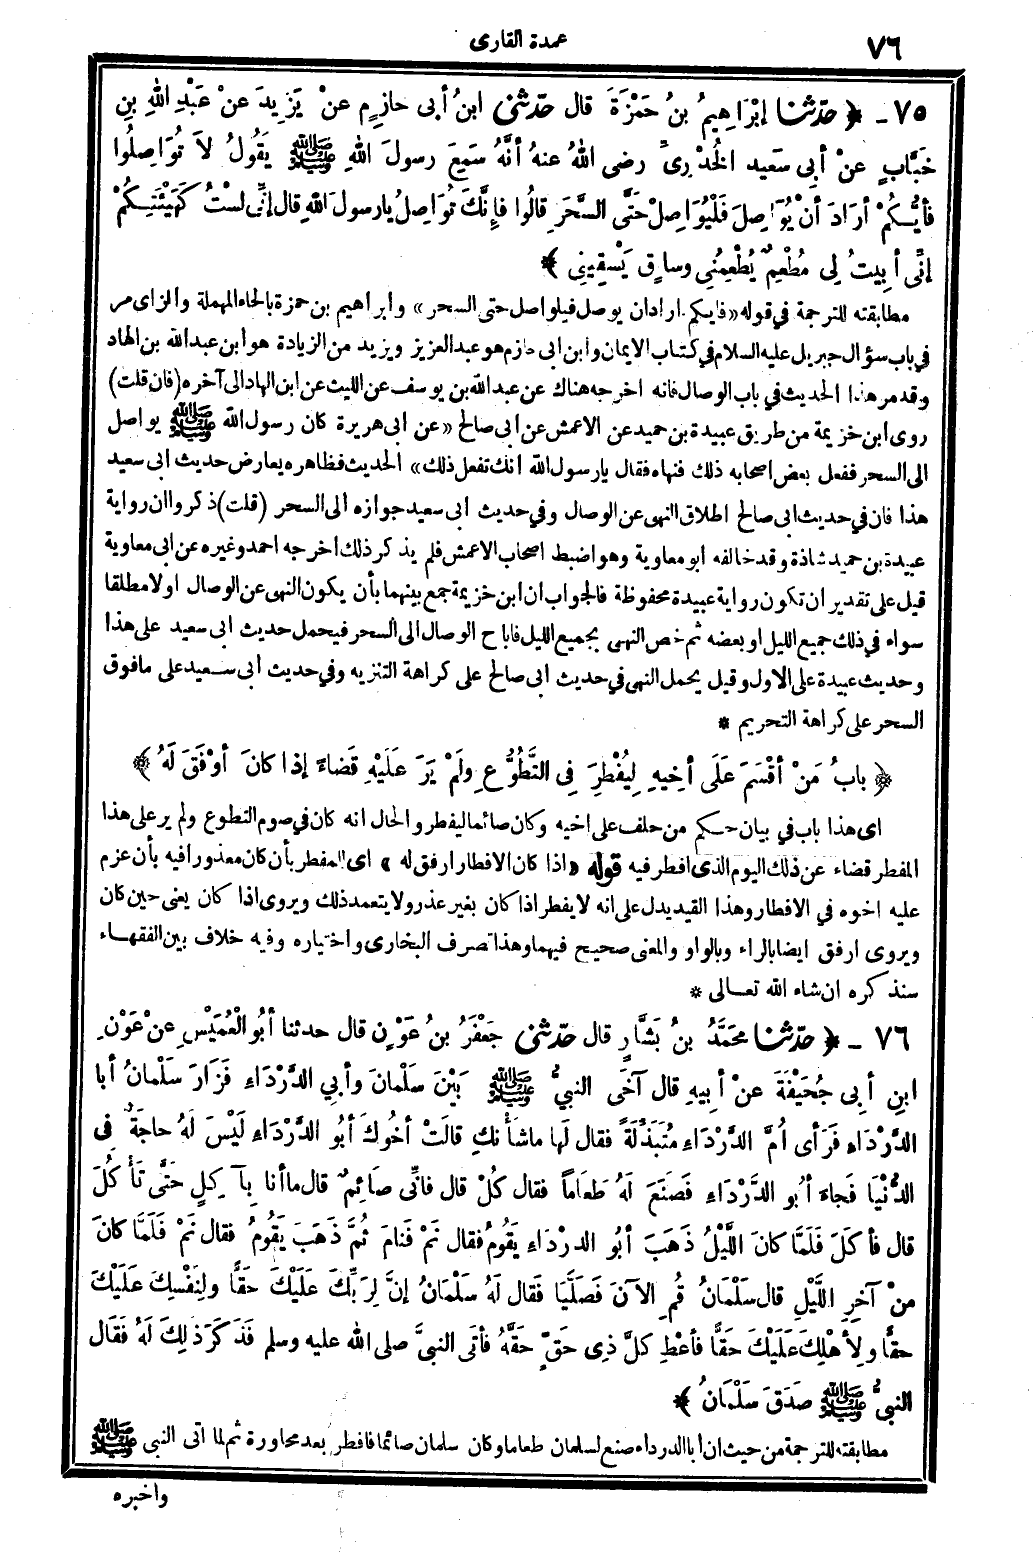 ٧٦
عمدة القارى
٧٥ ـ ﴿ حدّثنا إبْرَاهِيمُ بنُ حَمْزَةَ قال حدّثنى ابنُ أبى حازِمٍ عنْ يَزِيدَ عنْ عَبْدِ اللهِ بنِ
خَبَّابٍ عنْ أبِى سَعِيد الخُدْرِىِّ رضى اللهُ عنهُ أنَّهُ سَمِعَ رسولَ اللهِ ﷺ يَقُولُ لاَ تُوَاصِلُوا
فأيُّكُمْ أرَادَ أنْ يُوَاصِلَ فَلْيُوَاصِلْ حَتَّى السَّحَرِ قالُوا فإنَّكَ تُوَاصِلُ يارسولَ اللهِ قال إنِّى لسْتُ كَهَيْئَتِكُمْ
إنِّى أبِيتُ لِى مُطْعِمٌ يُطْعِمُنِى وساقٍ يَسْقِينِى ﴾
مطابقته للترجمة فى قوله «فايكم اراد ان يوصل فيلواصل حتى السحر» وابراهيم بن حمزة بالحاء المهملة والزاى مر
فى باب سؤال جبريل عليه السلام فى كتاب الايمان وابن ابى حازم هو عبد العزيز ويزيد من الزيادة هو ابن عبد الله بن الهاد
وقد مر هذا الحديث فى باب الوصال فانه اخرجه هناك عن عبد الله بن يوسف عن الليث عن ابن الهاد الى آخره (فان قلت)
روى ابن خزيمة من طريق عبيدة بن حميد عن الاعمش عن ابى صالح «عن ابى هريرة كان رسول الله ﷺ يواصل
الى السحر ففعل بعض اصحابه ذلك فنهاه فقال يارسول الله انك تفعل ذلك» الحديث فظاهره يعارض حديث ابى سعيد
هذا فان فى حديث ابى صالح اطلاق النهى عن الوصال وفى حديث ابى سعيد جوازه الى السحر (قلت) ذكروا ان رواية
عبيدة بن حميد شاذة وقد خالفه ابو معاوية وهو اضبط اصحاب الاعمش فلم يذكر ذلك اخرجه احمد وغيره عن ابى معاوية
قيل على تقدير ان تكون رواية عبيدة محفوظة فالجواب ان ابن خزيمة جمع بينهما بأن يكون النهى عن الوصال اولا مطلقا
سواء فى ذلك جميع الليل او بعضه ثم خص النهى بجميع الليل فاباح الوصال الى السحر فيحمل حديث ابى سعيد على هذا
وحديث عبيدة على الاول وقيل يحمل النهى فى حديث ابى صالح على كراهة التنزيه وفى حديث ابى سعيد على مافوق
السحر على كراهة التحريم *
﴿ بابُ مَنْ أقْسَمَ عَلَى أخِيهِ لِيُفْطِرَ فِى التَّطَوُّعِ ولَمْ يَرَ عَلَيْهِ قَضَاءً إذَا كانَ أوْفَقَ لَهُ ﴾
اى هذا باب فى بيان حكم من حلف على اخيه وكان صائما ليفطر والحال انه كان فى صوم التطوع ولم ير على هذا
المفطر قضاء عن ذلك اليوم الذى افطر فيه قوله «اذا كان الافطار ارفق له» اى للمفطر بأن كان معذورا فيه بأن عزم
عليه اخوه فى الافطار وهذا القيد يدل على انه لا يفطر اذا كان بغير عذر ولا يتعمد ذلك ويروى اذا كان يعنى حين كان
ويروى ارفق ايضا بالراء وبالواو والمعنى صحيح فيهما وهذا تصرف البخارى واختياره وفيه خلاف بين الفقهاء
سنذكره ان شاء الله تعالى *
٧٦ ـ ﴿ حدّثنا محَمَّدُ بنُ بَشَّارٍ قال حدّثنى جَعْفَرُ بنُ عَوْنٍ قال حدثنا أبُو الْعُمَيْسِ عنْ عَوْنِ
ابنِ أبِى جُحَيْفَةَ عنْ أبِيهِ قال آخَى النبيُّ ﷺ بَيْنَ سَلْمَانَ وأبِي الدَّرْدَاءِ فَزَارَ سَلْمَانُ أبا
الدَّرْدَاءِ فَرَأى أُمَّ الدَّرْدَاءِ مُتَبَذِّلَةً فقال لَها ماشأْنكِ قالَتْ أخُوكَ أبُو الدَّرْدَاءِ لَيْسَ لَهُ حاجَةٌ فِى
الدُّنْيَا فَجاءَ أبُو الدَّرْدَاءِ فَصَنَعَ لَهُ طَعَاماً فقال كُلْ قال فانِّى صَائِمٌ قال ماأنا بِآكِلٍ حَتَّى تَأْكُلَ
قال فأكَلَ فَلَمَّا كانَ اللَّيْلُ ذَهَبَ أبُو الدرْدَاءِ يَقُومُ فقال نَمْ فَنَامَ ثُمَّ ذَهَبَ يَقُومُ فقال نَمْ فَلَمَّا كانَ
منْ آخِرِ اللَّيْلِ قال سَلْمَانُ قُمِ الآنَ فَصَلَّيَا فَقال لَهُ سَلْمَانُ إنَّ لِرَبِّكَ عَلَيْكَ حَقًّا ولِنَفْسِكَ عَلَيْكَ
حقًّا ولِأهْلِكَ عَلَيْكَ حَقًّا فأعْطِ كلَّ ذِى حَقٍّ حَقَّهُ فأتَى النبيَّ صلى الله عليه وسلم فَذَكَرَ ذلِكَ لَهُ فَقال
النبيُّ ﷺ صدَقَ سَلْمَانُ ﴾
مطابقته للترجمة من حيث ان ابا الدرداء صنع لسلمان طعاما وكان سلمان صائما فافطر بعد محاورة ثم لما اتى النبى ﷺ
واخبره